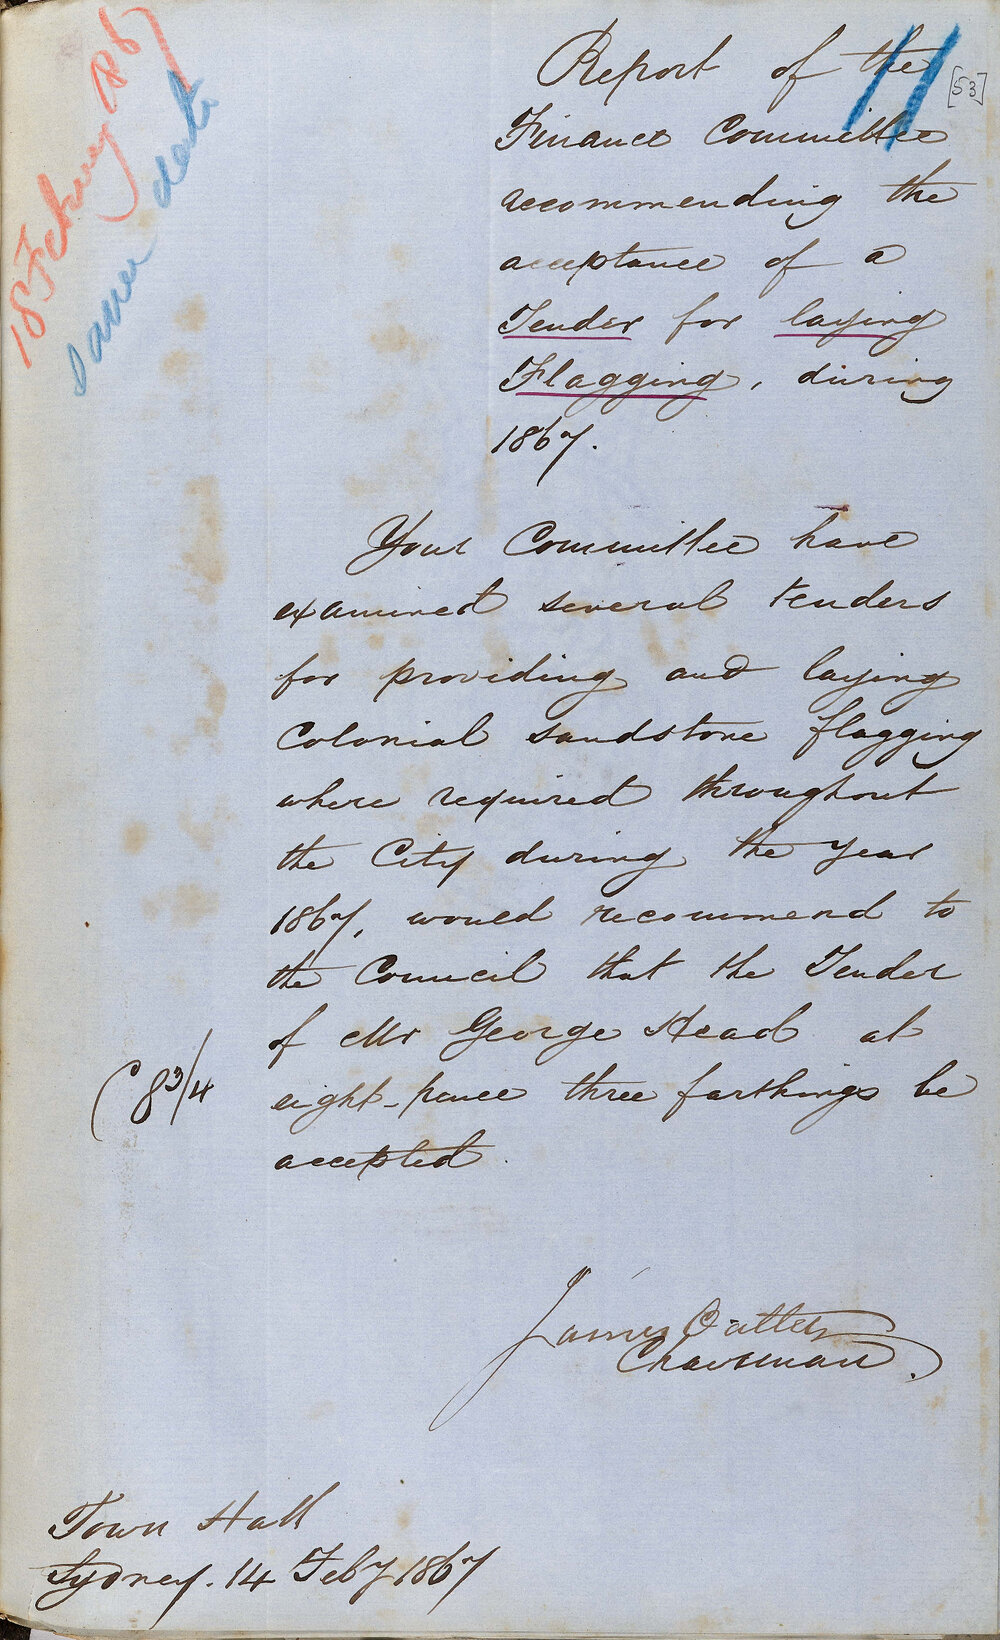 18 February 1867
Same date
11
[53]
Report of the
Finance Committee
recommending the
acceptance of a
Tender for laying
Flagging, during
1867.
Your Committee have
examined several tenders
for providing and laying
Colonial sandstone flagging
where required throughout
the City during the year
1867, would recommend to
the Council that the Tender
of Mr George Head at
eight-pence three farthings be
accepted.
( 8 3/4
James Oatley
Chairman.
Town Hall
Sydney. 14 Feby 1867